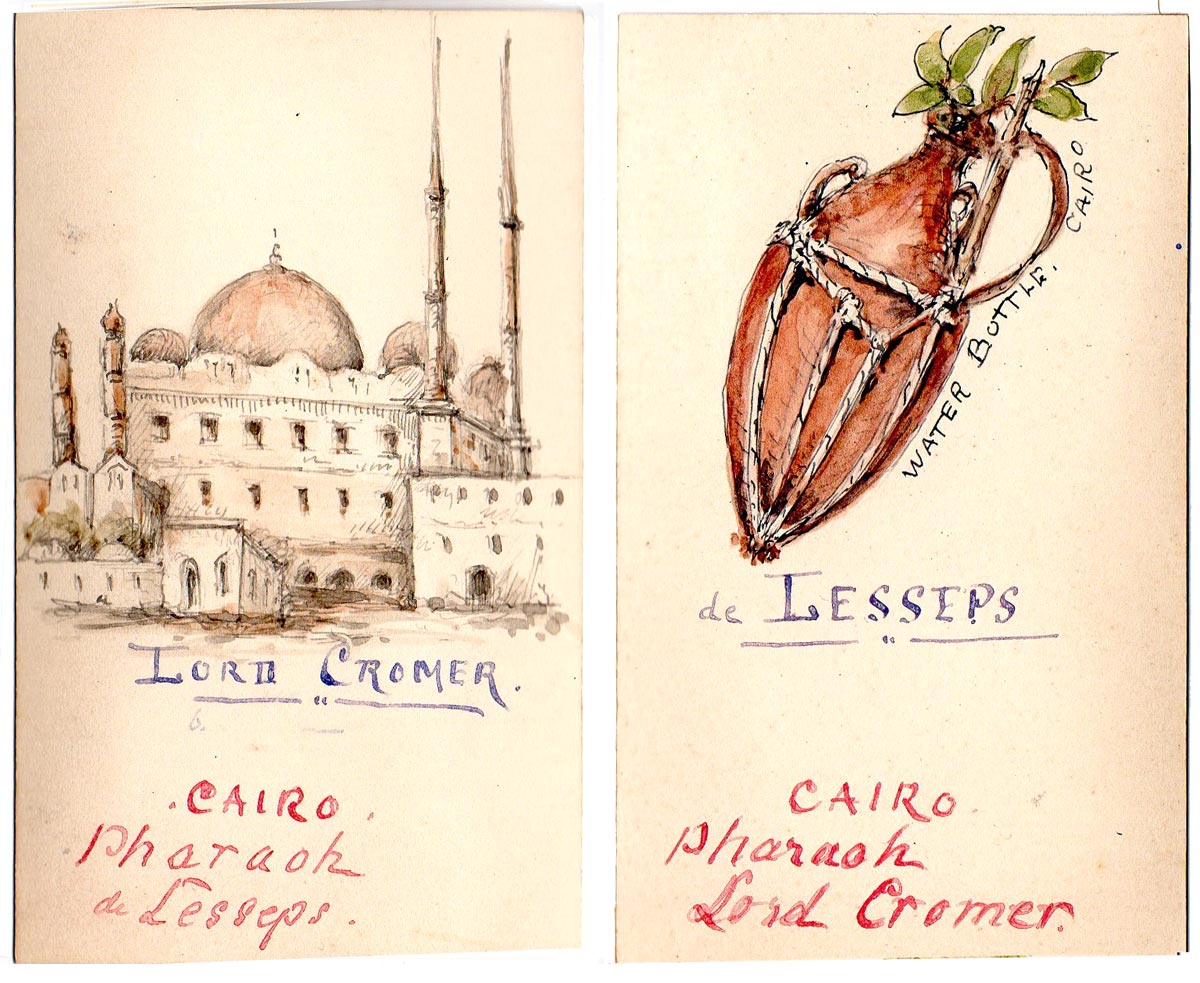 LORD CROMER.
6.
.CAIRO.
Pharaoh
de Lesseps.
WATER BOTTLE. CAIRO
de LESSEPS
CAIRO.
Pharaoh
Lord Cromer.